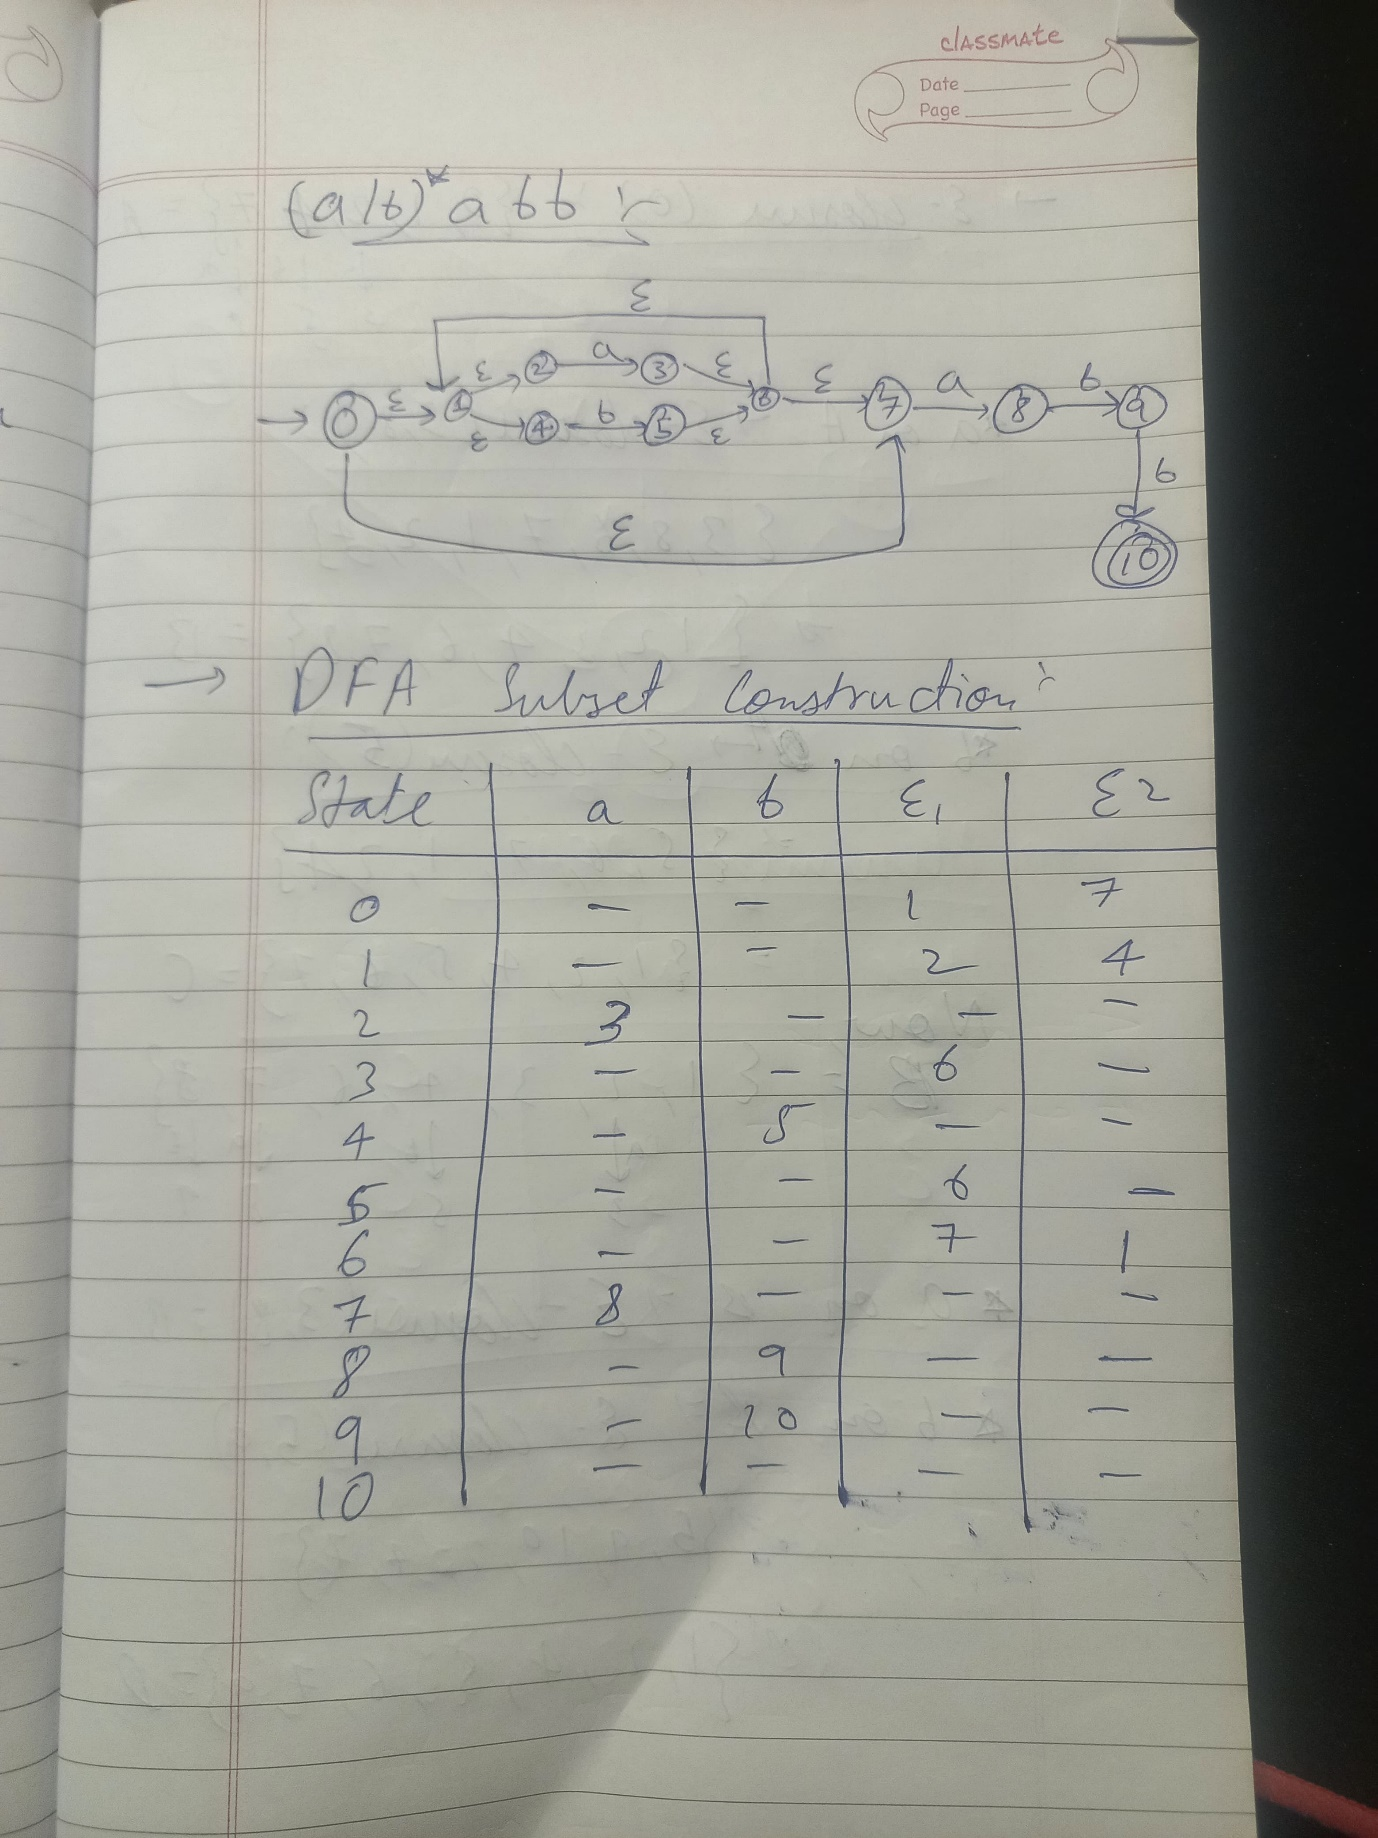 classmate
Date
Page
(a/b)* a b b :-
ε
ε 2 a 3 ε
→ 0 ε 1 6 ε 7 a 8 b 9
ε 4 b 5 ε
b
ε
10
→ DFA Subset Construction :-
State a b ε1 ε2
0 - - 1 7
1 - = 2 4
2 3 - - -
3 - - 6 -
4 - 5 - -
5 - - 6 -
6 - - 7 1
7 8 - - -
8 - 9 - -
9 - 10 - -
10 - - - -